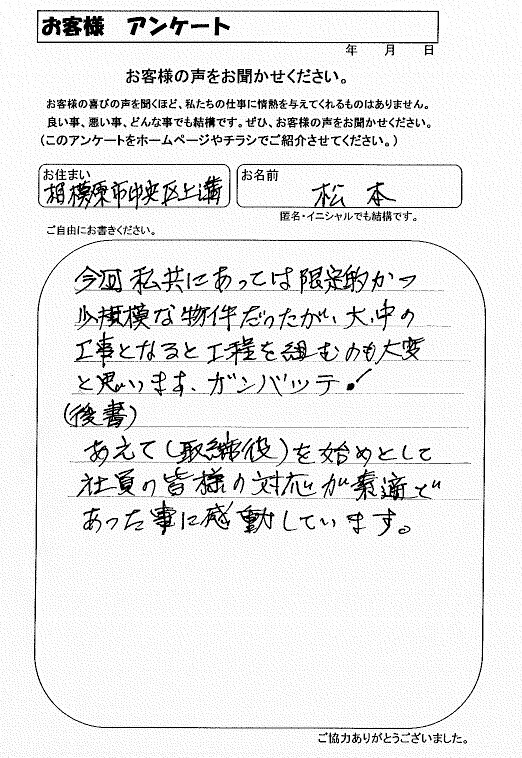 お客様 アンケート
年 月 日
お客様の声をお聞かせください。
お客様の喜びの声を聞くほど、私たちの仕事に情熱を与えてくれるものはありません。
良い事、悪い事、どんな事でも結構です。ぜひ、お客様の声をお聞かせください。
(このアンケートをホームページやチラシでご紹介させてください。)
お住まい
相模原市中央区上溝
お名前
松本
匿名・イニシャルでも結構です。
ご自由にお書きください。
今回私共にあっては限定的かつ
少規模な物件だったがい大.中の
工事となると工程を組むのも大変
と思います.ガンバッテ!
(後書)
あえて(取締役)を始めとして
社員の皆様の対応が素適で
あった事に感動しています。
ご協力ありがとうございました。